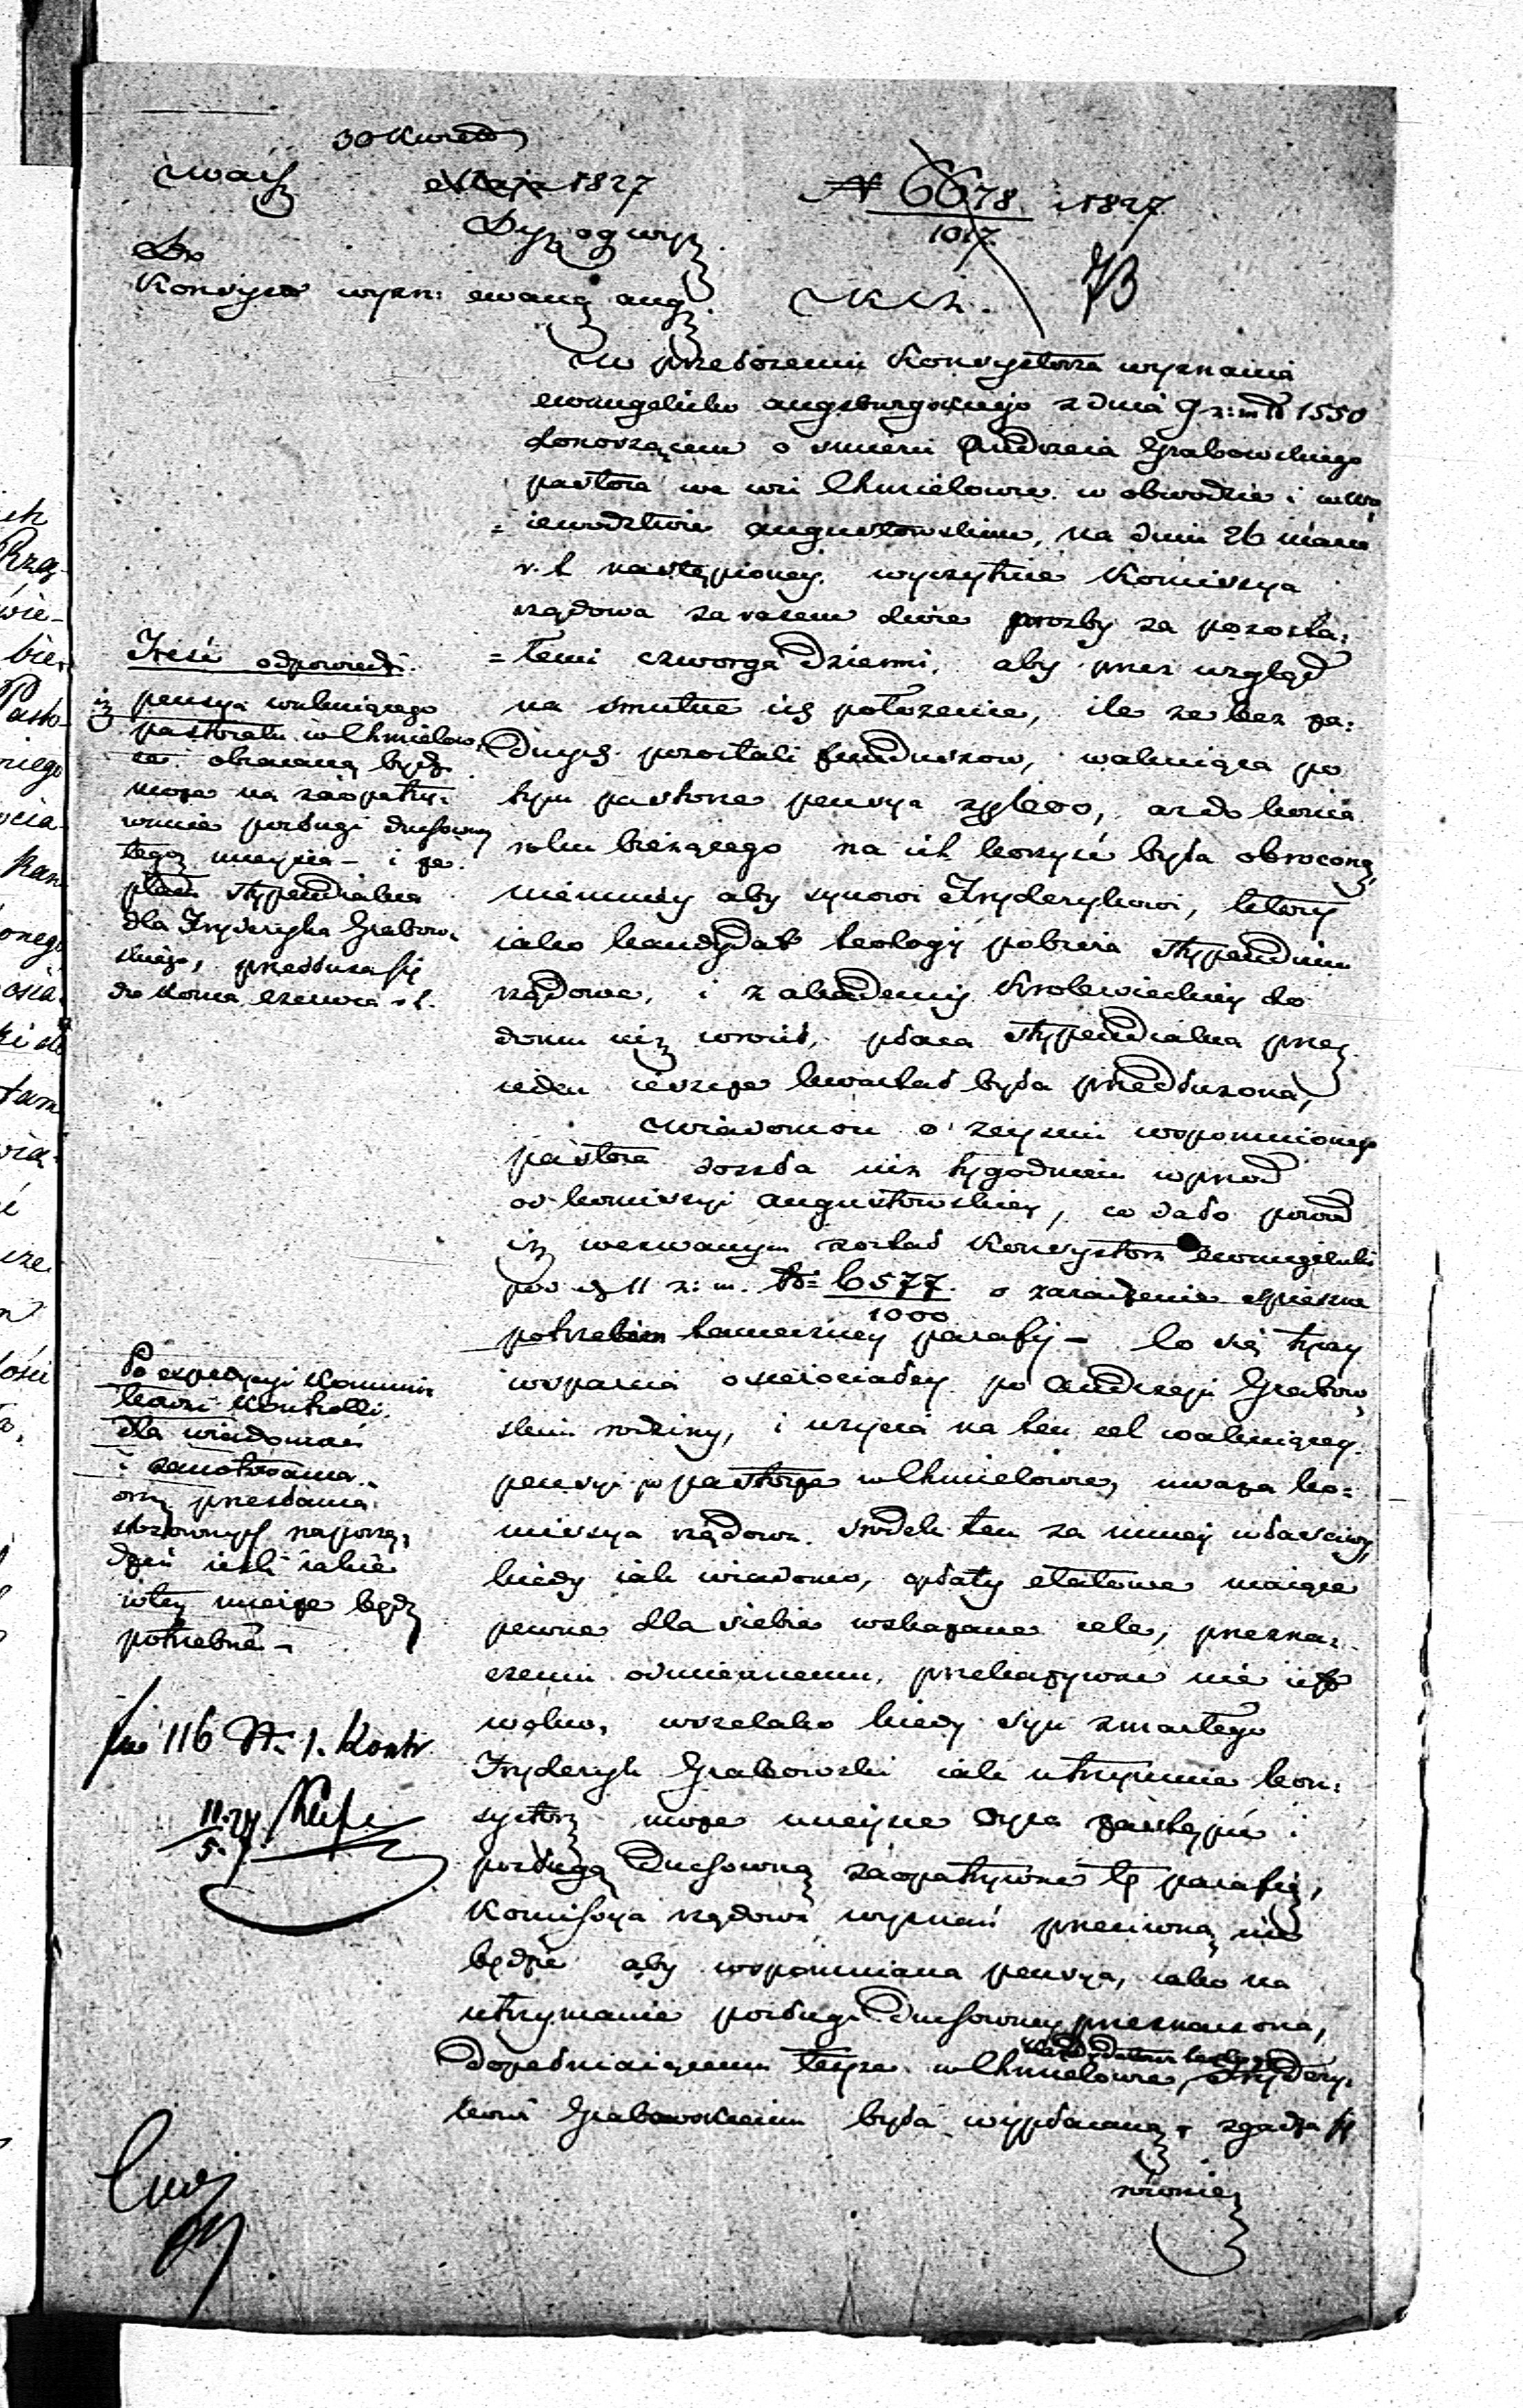 30 Kwiet
Warsz Maja 1827
N 6678 1827
1017
Do
Konsyst wyzn: ewang augs.
73
W przełożeniu Konsystorza wyznania
ewangelicko augsburgskiego z dnia 9 z: m N 1550
donoszącem o śmierci Andrzeia Grabowskiego
pastora we wsi Chmielowce w obwodzie i wo
=iewodztwie augustowskim, na dniu 26 marca
r. b nastąpioney, wyczytuie Kommissya
rządowa zarazem dwie prozby za pozosta:
=łemi czworga dziećmi, aby przez wzgląd
na smutne ich położenie, ile że bez ża:
dnych pozostali funduszow, wakuiąca po
tym pastorze pensya zł 600, aż do końca
roku bieżącego na ich korzyść była obrocona,
niemniey aby synowi Fryderykowi, ktory
iako kandydat teologii pobiera stypendium
rządowe, i z akademii Krolewieckiey do
domu iuż wrocił, płaca stypendialna przez
ieden ieszcze kwartał była przedłużona,
Wiadomość o zeyściu wspomnionego
pastora doszła iuż tygodniem wprzod
od kommissyi augustowskiey, co dało powod
iż wezwanym został Konsystorz ewangelicki
pod d 11 z: m. N: 6577 o zaradzenie spieszne
1000
potrzebom tameczney parafii – Co się tyczy
wsparcia osierociałey po Andrzeju Grabow
skim rodziny, i użycia na ten cel wakuiącey
pensyi po pastorze w Chmielowce, uważa ko=
missya rządowa środek ten za mniey właściwy,
kiedy iak wiadomo, opłaty etatowe maiące
pewne dla siebie wskazane cele, przezna:
czeniu odmiennemu, przekazywać nie iest
wolno, wszelako kiedy syn zmarłego
Fryderyk Grabowski iak utrzymuie kon:
systorz może mieysce oyca zastąpić i
posługą duchowną zaopatrywać tę parafią,
Komissya rządowa wyznań przeciwną nie
będzie aby wspomniana pensya, iako na
utrzymanie posługi duchowney przeznaczona,
dopełniaiącemu teyże w Chmielowce, Frydery:
kowi Grabowskiemu była wypłacaną, zgadza się
rownież
Treść odpowiedzi.
iż pensya wakuiącego
pastoratu w Chmielow
ce obracaną bydź
może na zaopatry:
wanie posługi duchowney
tegoż mieysca – i że
płaca stypendialna
dla Fryderyka Grabow:
skiego, przedłuża się
do końca czerwca r. b.
Po expedycyi kommuni
kować Kontrolli
dla wiadomości
i zanotowania
oraz przesłania
stosownych rozporzą:
dzeń iesli iakie
w tey mierze będą
potrzebne –
fol 116 N. 1. Kontr